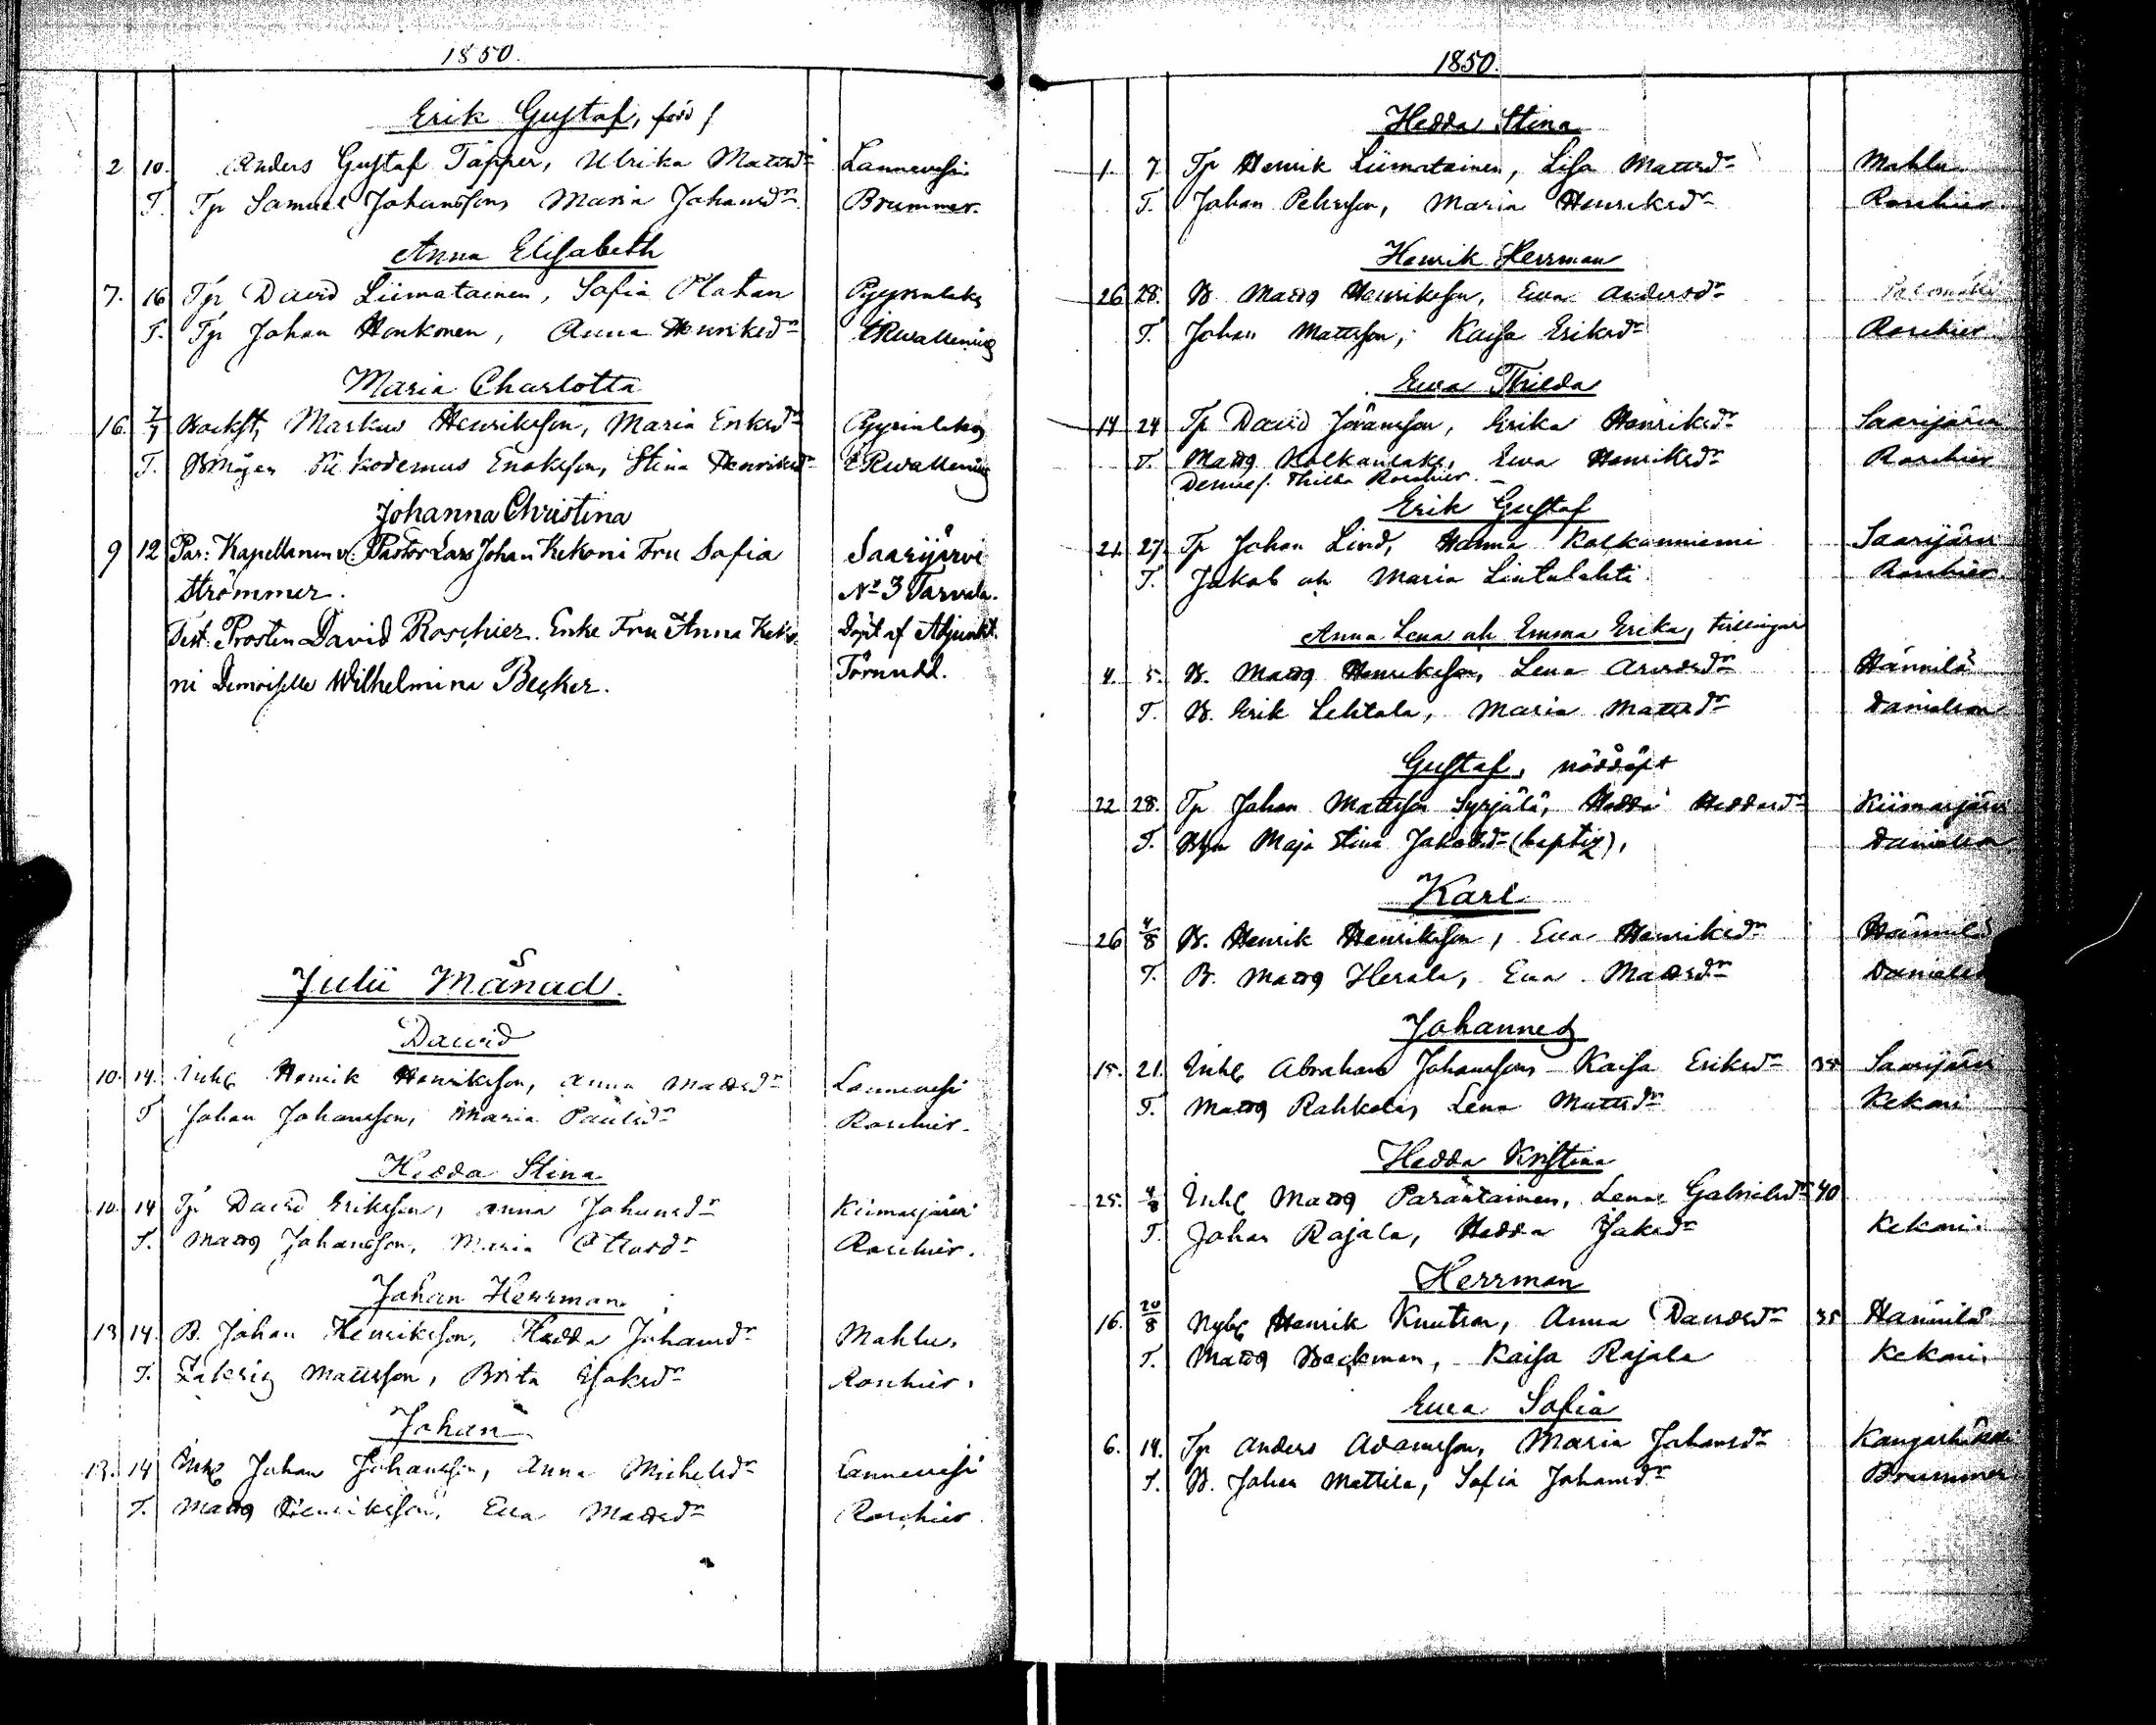 1850.
Erik Gustaf, född
2 10. Anders Gustaf Täpper, Ulrika Mattsdr Lannevesi
T. Tp Samuel Johansson, Maria Johansdr Brummer.
Anna Elisabeth
7. 16 Tp David Liimatainen, Sofia Platan Pyyrinlaks
T. Tp Johan Honkonen, Anna Henriksdr
Maria Charlotta
16. 7/7 Markus Henriksson, Maria Eriksdr Pyyrinlaks
T. Enoksson, Stina Henriksdr
Johanna Christina
9 12 Par: Kapellanen v: Pastor Lars Johan Kekoni Fru Sofia Saarijärvi
Strömmer. No 3 Tarvala.
Test. Prosten David Roschier. Enke Fru Anna Keko- Döpt af Adjunkt.
ni Demoiselle Wilhelmina Becker. Törnudd.
Julii Månad.
David
10. 14. Inh Henrik Henriksson, Anna Mattsdr Lannevesi
T Johan Johansson, Maria Paulsdr Roschier.
Hedda Stina
10. 14 Tp David Eriksson, Anna Johansdr Kiimasjärvi
T. Matts Johansson, Maria Ottosdr Roschier.
Johan Herrman
13 14. B. Johan Henriksson, Hedda Johansdr Mahlu.
T. Zakris Mattsson, Brita Isaksdr Roschier.
Johan
13. 14 Inh Johan Johansson, Anna Michelsdr Lannevesi
T. Matts Henriksson, Eva Mattsdr Roschier.
1850.
Hedda Stina
1. 7. Tp Henrik Liimatainen, Lisa Mattsdr Mahlu
T. Johan Pehrsson, Maria Henriksdr Roschier.
Henrik Herrman
26 28. B. Matts Henriksson, Eva Andersdr
T. Johan Mattsson, Kaisa Eriksdr Roschier
Eva Thilda
14 24 Tp David Göransson, Erika Henriksdr Saarijärvi
T. Matts Kolkanlaks, Eva Henriksdr Roschier
Demois. Thilda Roschier.
Erik Gustaf
21. 27. Tp Johan Lind, Hanna Kolkanniemi Saarijärvi
T. Jakob och Maria Lintulahti Roschier.
Anna Lena och Emma Erika, tvillingar
4. 5. B. Matts Henriksson, Lena Arvidsdr Hännilä
T. B. Erik Lehtola, Maria Mattsdr Danielson
Gustaf, nöddöpt
22 28. Tp Johan Mattsson Syrjälä, Hedda Kiimasjärvi
T. Maja Stina Jakobsdr (baptiz), Danielson
Karl
26 4/8 B. Henrik Henriksson, Eva Henriksdr Hännilä
T. B. Matts Herala, Eva Mattsdr Danielson
Johannes
15. 21. Inh Abraham Johansson, Kaisa Eriksdr 35 Saarijärvi
T. Matts Rahkola, Lena Mattsdr Kekoni
Hedda Kristina
25. 4/8 Inh Matts Parantainen, Lena Gabrielsdr 40
T. Johan Rajala, Hedda Isaksdr Kekoni
Herrman
16. 20/8 Nyb Henrik Knutson, Anna Davidsdr 35 Hännilä
T. Matts Backman, Kaisa Rajala Kekoni.
Eva Sofia
6. 14. Tp Anders Adamsson, Maria Johansdr
T. B. Johan Mattila, Sofia Johansdr Brummer.